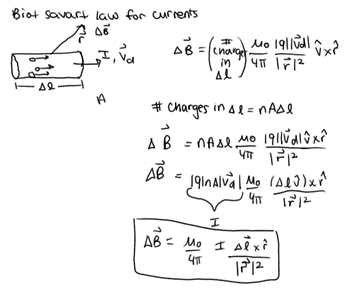 Biot savart law for currents
ΔB⃗
r⃗
I, v⃗d
Δl
A
ΔB⃗ = (# charges in Δl) μ₀/4π |q||v⃗d| v̂×r̂ / |r⃗|²
# charges in Δl = nAΔl
ΔB⃗ = nAΔl μ₀/4π |q||v⃗d| v̂×r̂ / |r⃗|²
ΔB⃗ = |q|nA|v⃗d| μ₀/4π (Δl v̂)×r̂ / |r⃗|²
I
ΔB⃗ = μ₀/4π I Δl⃗×r̂ / |r⃗|²